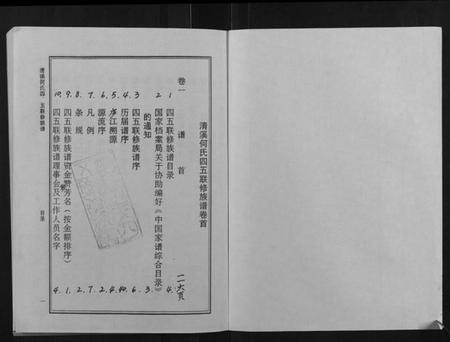 清溪何氏四五联修族谱卷首
一一六页
卷一 谱首
1 四五联修族谱目录 4.
2 国家档案局关于协助编好《中国家谱综合目录》
的通知 3.
3 四五联修族谱序 6.
4. 历届谱序
5. 庐江溯源
6. 源流序 2.
7. 凡例 7.
8. 条规 2.
9. 四五联修族谱资金赞芳名(按金额排序) 1.
10. 四五联修族谱理事会及工作人员名字 4.
清溪何氏四、五联修族谱
目录
一